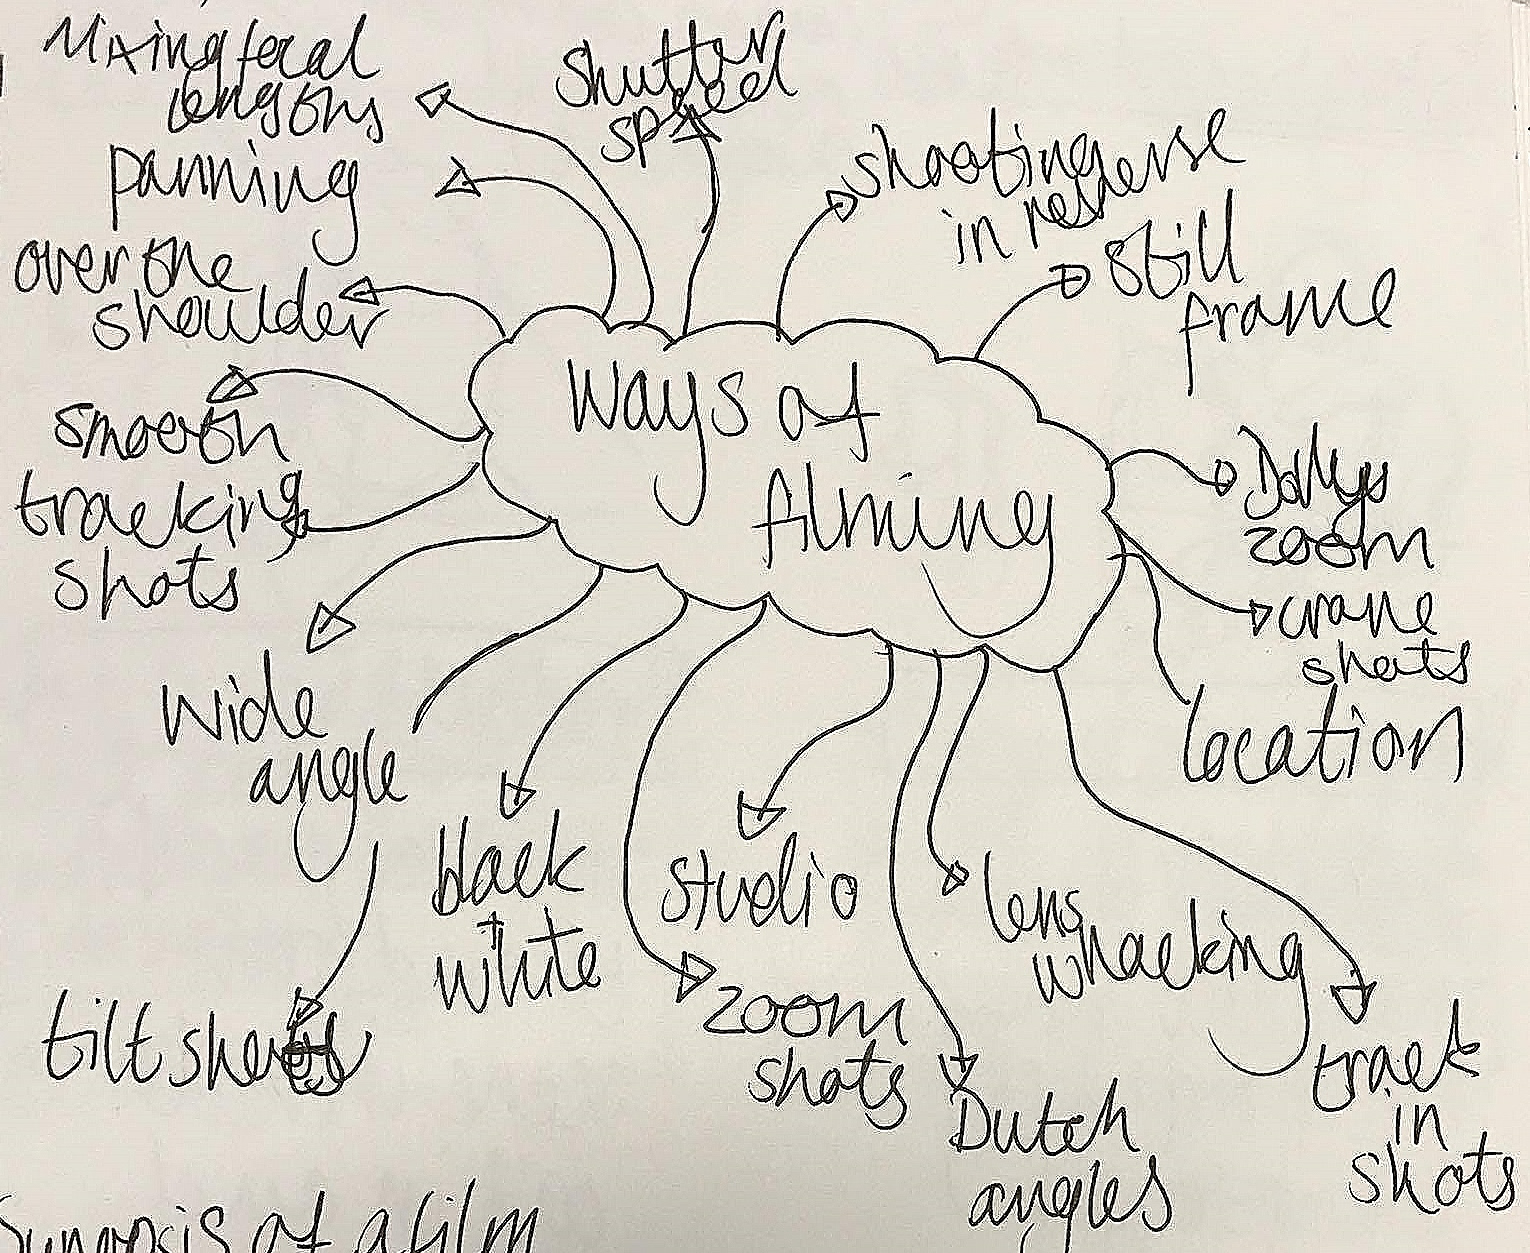 Mixing focal
lengths
Shutter
speed
panning
shooting
in reverse
over the
shoulder
Still
frame
Ways of
filming
smooth
tracking
shots
Dollys
zoom
crane
shots
location
wide
angle
black
+
white
studio
lens
whacking
zoom
shots
tilt shots
Dutch
angles
track
in
shots
Synopsis of a film